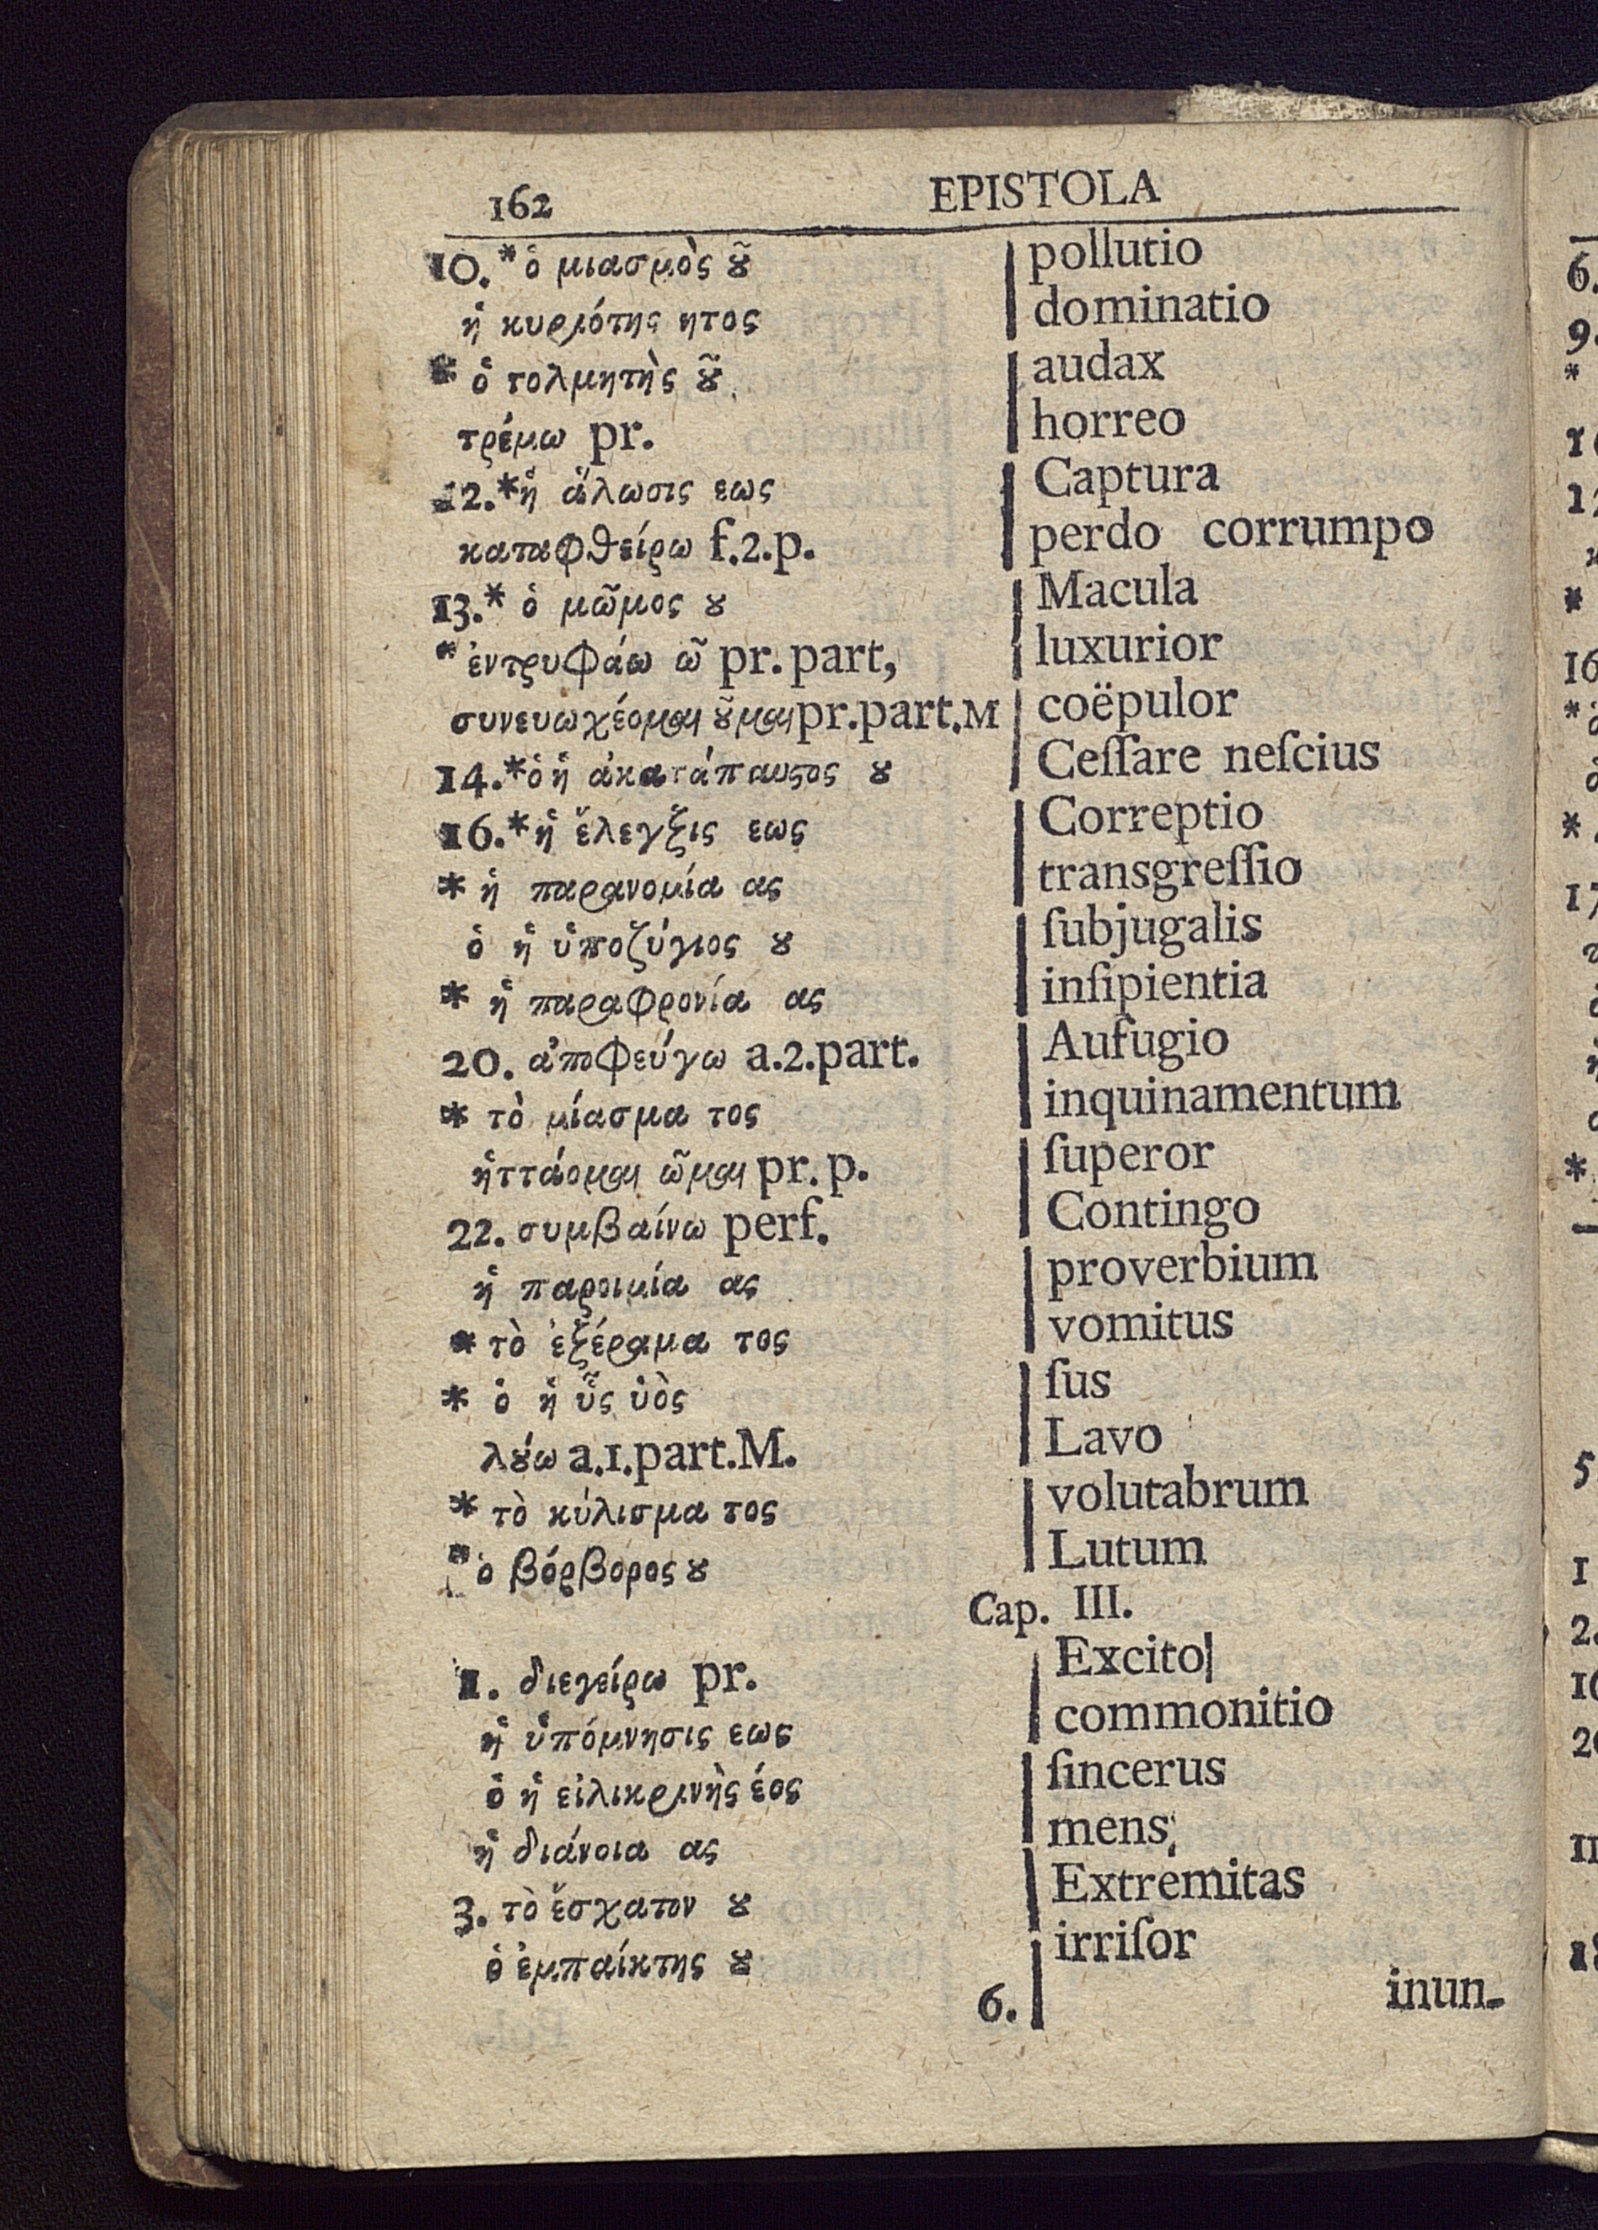 162 EPISTOLA
10.* ὁ μιασμὸς ȣ͂ | pollutio
ἡ κυριότης ητος | dominatio
* ὁ τολμητὴς ȣ͂ | audax
τρέμω pr. | horreo
12.* ἡ ἅλωσις εως | Captura
καταφθείρω f.2.p. | perdo corrumpo
13.* ὁ μῶμος ȣ | Macula
* ἐντρυφάω ῶ pr. part, | luxurior
συνευωχέομαι ȣ͂μαι pr.part.M | coëpulor
14.* ὁ ἡ ἀκατάπαυϛος ȣ | Ceſſare neſcius
16.* ἡ ἔλεγξις εως | Correptio
* ἡ παρανομία ας | transgreſſio
ὁ ἡ ὑποζύγιος ȣ | ſubjugalis
* ἡ παραφρονία ας | inſipientia
20. ἀποφεύγω a.2.part. | Aufugio
* τὸ μίασμα τος | inquinamentum
ἡττάομαι ῶμαι pr. p. | ſuperor
22. συμβαίνω perf. | Contingo
ἡ παροιμία ας | proverbium
* τὸ ἐξέραμα τος | vomitus
* ὁ ἡ ὗς ὑὸς | ſus
λȣ́ω a.1.part.M. | Lavo
* τὸ κύλισμα τος | volutabrum
* ὁ βόρβορος ȣ | Lutum
Cap. III.
1. διεγείρω pr. | Excito
ἡ ὑπόμνησις εως | commonitio
ὁ ἡ εἰλικρινὴς έος | ſincerus
ἡ διάνοια ας | mens,
3. τὸ ἔσχατον ȣ | Extremitas
ὁ ἐμπαίκτης ȣ | irriſor
6. | inun-